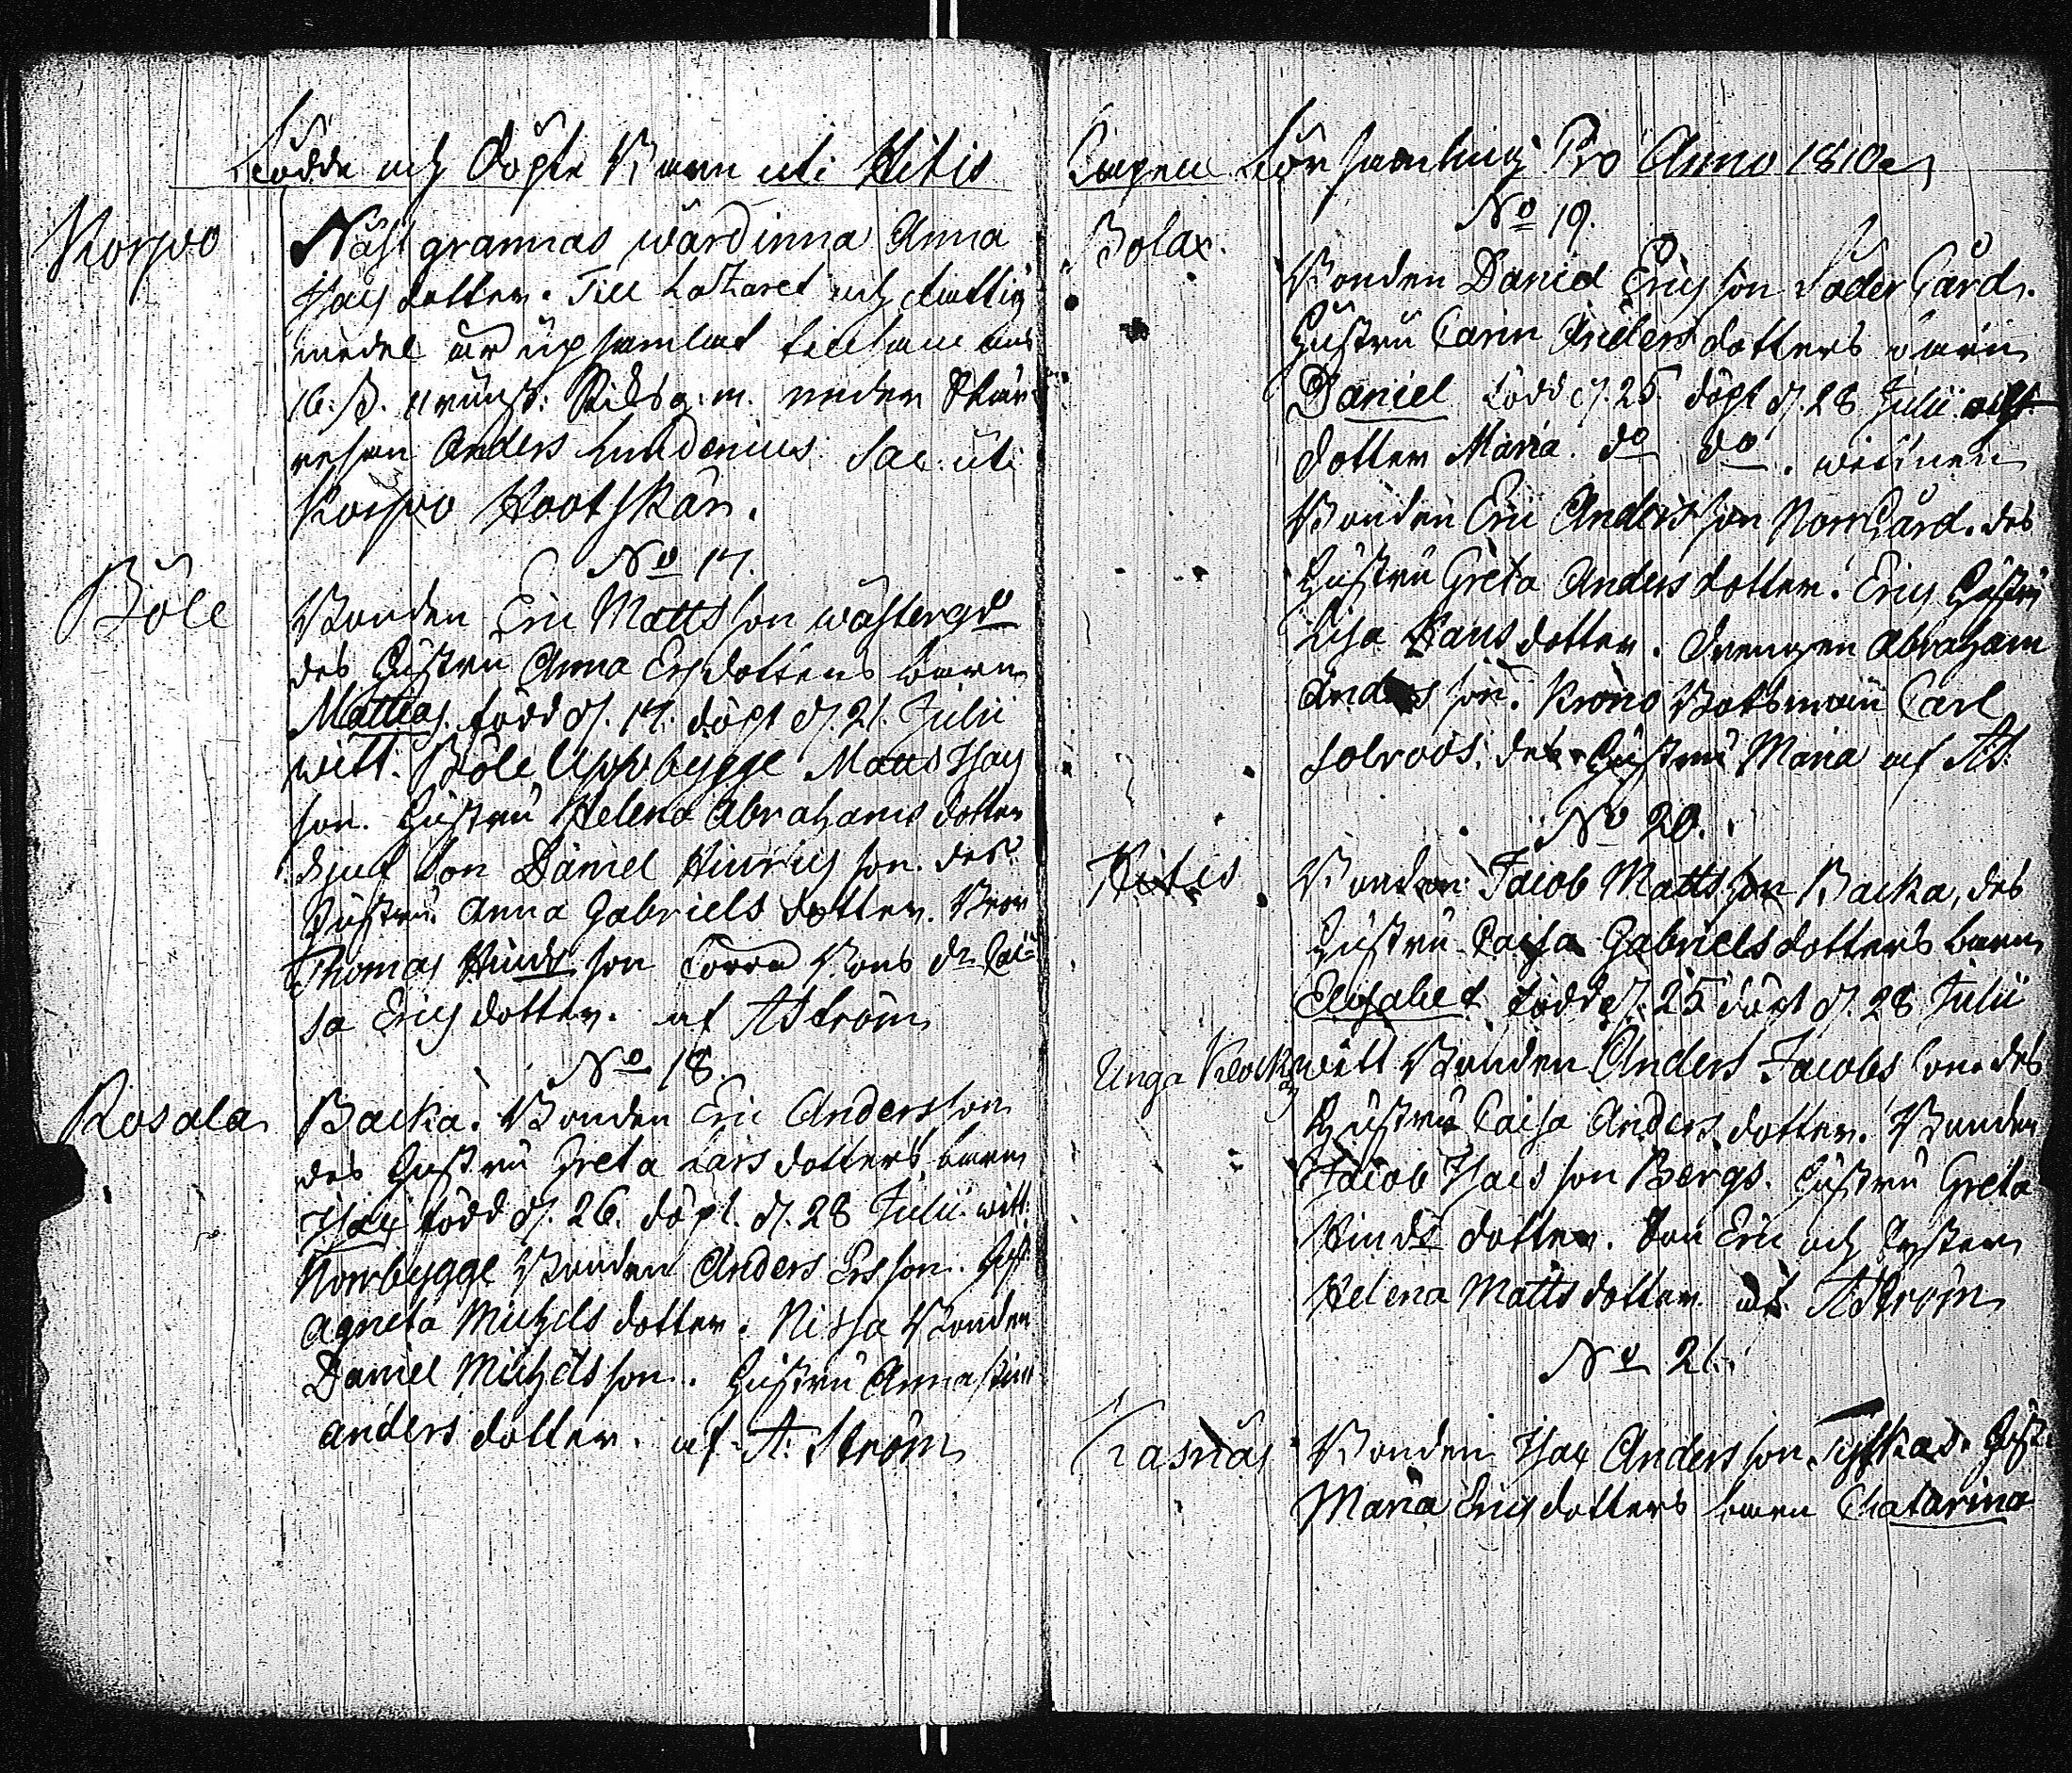 Födde och döpte Barn uti Hitis
Korpo
Näst grannas wärdinna Anna
Isacs dotter. Till Lazaret och fattig
medel är upsamlat tillsammans
16. ß. 11 runst: Riksg: m. under Skär
resan Anders Lundenius Sac. uti
Korpo Hootskär.
No 17.
Böle
Bonden Eric Mattsson wästergd
des Hustru Anna Ersdotters barn
Mattias född d. 17. döpt d. 21. Julii
witt. Böle Uppbygge Matts Isacs
son. Hustru Helena Abrahams dotter
Son Daniel Hinrics son. des
Hustru Anna Gabriels dotter. Bror
Thomas Hindr son Torra Bons dr Cai
sa Erics dotter. af AStröm
No 18.
Rosala
Backa. Bonden Eric Andersson
des Hustru Greta Lars dotters barn
Isac född d. 26. döpt. d. 28 Julii witt.
Norrbygge Bonden Anders Ersson. Hust
Agneta Michels dotter. Nissa Bonden
Daniel Michelsson. Hustru Anna Stina
Anders dotter. af A: Ström
Capell Församling Pro Anno 1810
No 19.
Bolax.
Bonden Daniel Ericsson Söder Gård.
Hustru Carin Anders dotters barn
Daniel född d. 25 döpt d. 28 Julii
dotter Maria. do do. wittnen
Bonden Eric Andersson Norrgård. des
Hustru Greta Anders dotter. Erics Hustru
Lisa Hans dotter. Drengen Abraham
Anders son. Krono Botsman Carl
Solroos. des Hustru Maria af AS.
No 20.
Hitis
Bonden Jacob Mattsson Backa, des
Hustru Caisa Gabriels dotters barn
Elisabet född d. 25 döpt d. 28 Julii
Unga Klockaz
witt Bonden Anders Jacobs son des
Hustru Caisa Anders dotter. Bonden
Jacob Isacs son Bergs. Hustru Greta
Hinds dotter. Son Eric och Systern
Helena Matts dotter af AStröm
No 21.
Kasnäs
Bonden Isac Andersson Hust.
Maria Erics dotters barn Chatarina